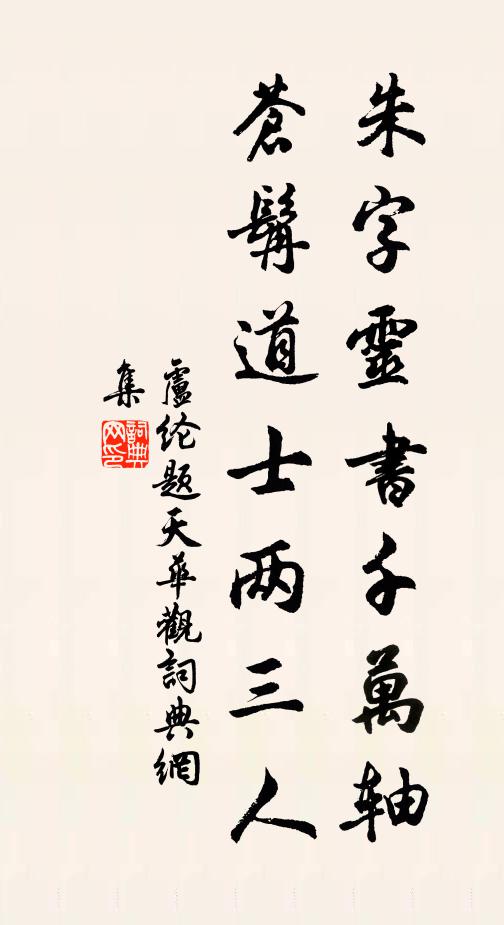 朱字靈書千萬軸
蒼髯道士两三人
盧纶题天華觀詞典網
集
詞典网印